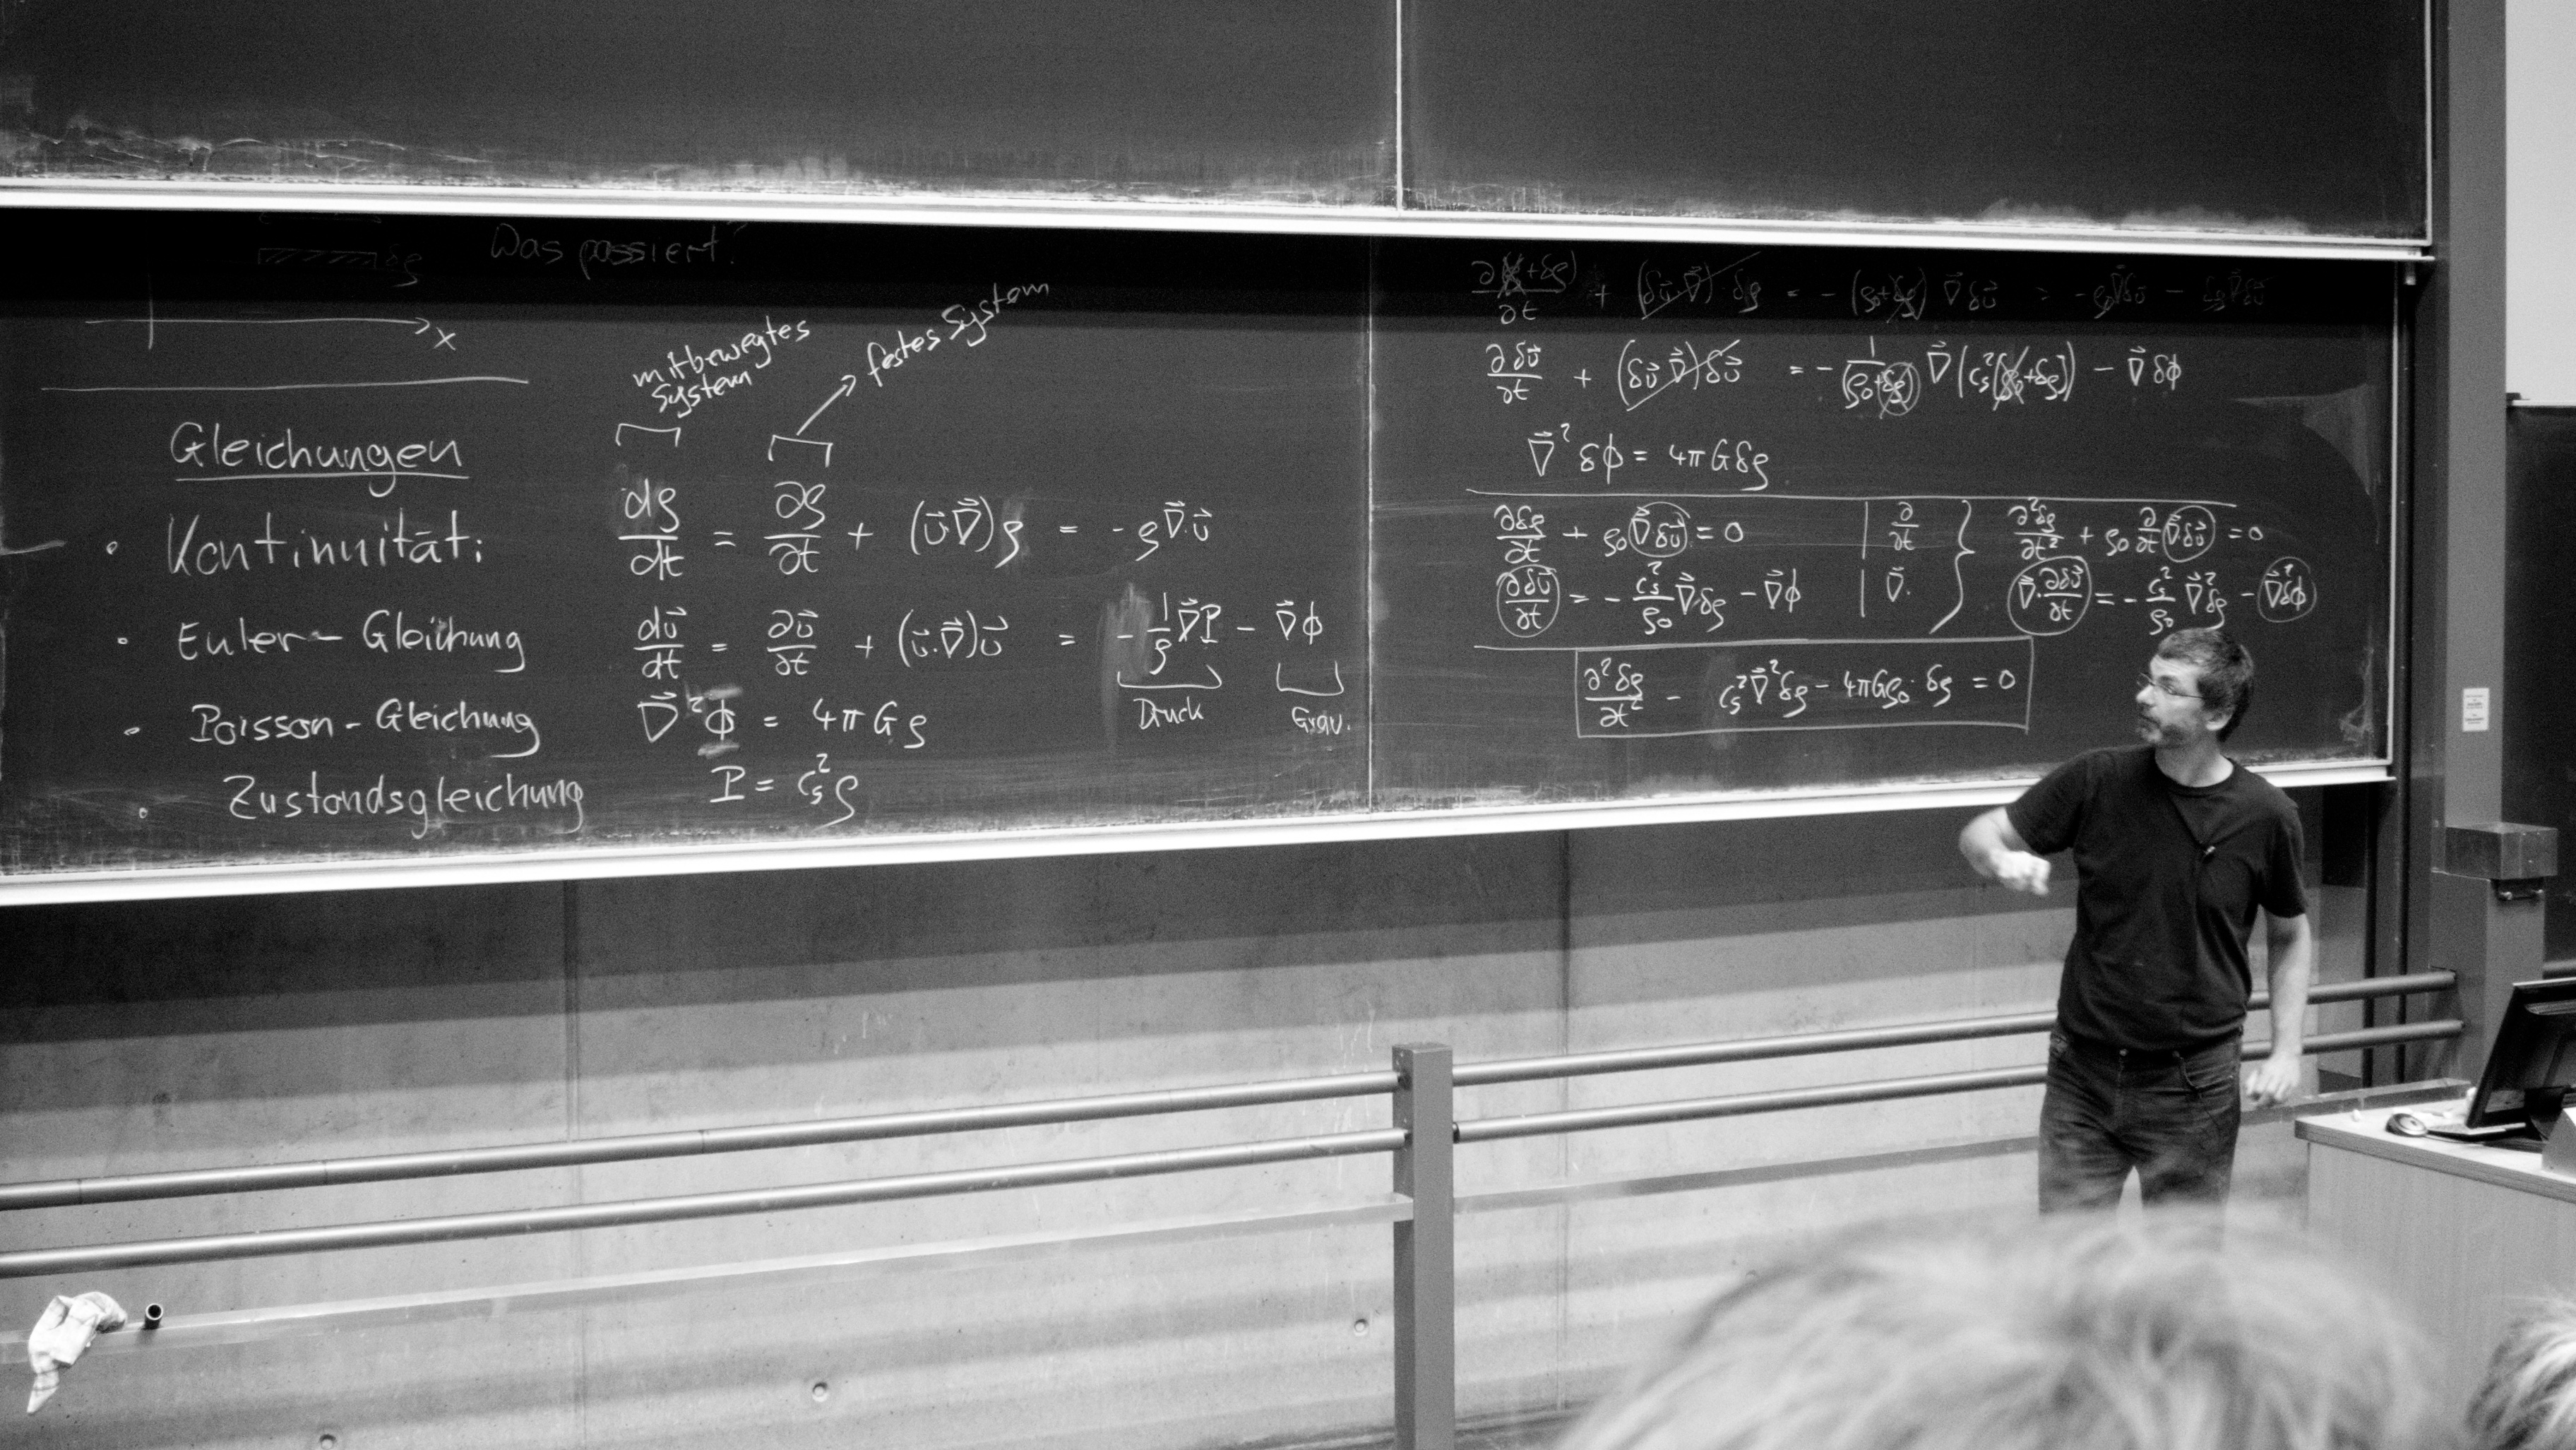 δρ Was passiert?
x
mitbewegtes
System
festes System
Gleichungen
• Kontinuität: dρ/dt = ∂ρ/∂t + (v⃗ ∇⃗)ρ = - ρ ∇⃗·v⃗
• Euler-Gleichung dv⃗/dt = ∂v⃗/∂t + (v⃗·∇⃗)v⃗ = - 1/ρ ∇⃗P - ∇⃗ϕ
Druck Grav.
• Poisson-Gleichung ∇⃗²ϕ = 4πGρ
• Zustandsgleichung P = c_s²ρ
∂(ρ₀+δρ)/∂t + (δv⃗ ∇⃗)·δρ = - (ρ₀+δρ) ∇⃗δv⃗ = -ρ₀∇⃗δv⃗ - δρ∇⃗δv⃗
∂δv⃗/∂t + (δv⃗ ∇⃗)δv⃗ = - 1/(ρ₀+δρ) ∇⃗(c_s²(ρ₀+δρ)) - ∇⃗δϕ
∇⃗²δϕ = 4πGδρ
∂δρ/∂t + ρ₀ ∇⃗δv⃗ = 0 | ∂/∂t } ∂²δρ/∂t² + ρ₀ ∂/∂t ∇⃗δv⃗ = 0
∂δv⃗/∂t = - c_s²/ρ₀ ∇⃗δρ - ∇⃗ϕ | ∇⃗· } ∇⃗·∂δv⃗/∂t = - c_s²/ρ₀ ∇⃗²δρ - ∇⃗²δϕ
∂²δρ/∂t² - c_s²∇⃗²δρ - 4πGρ₀·δρ = 0